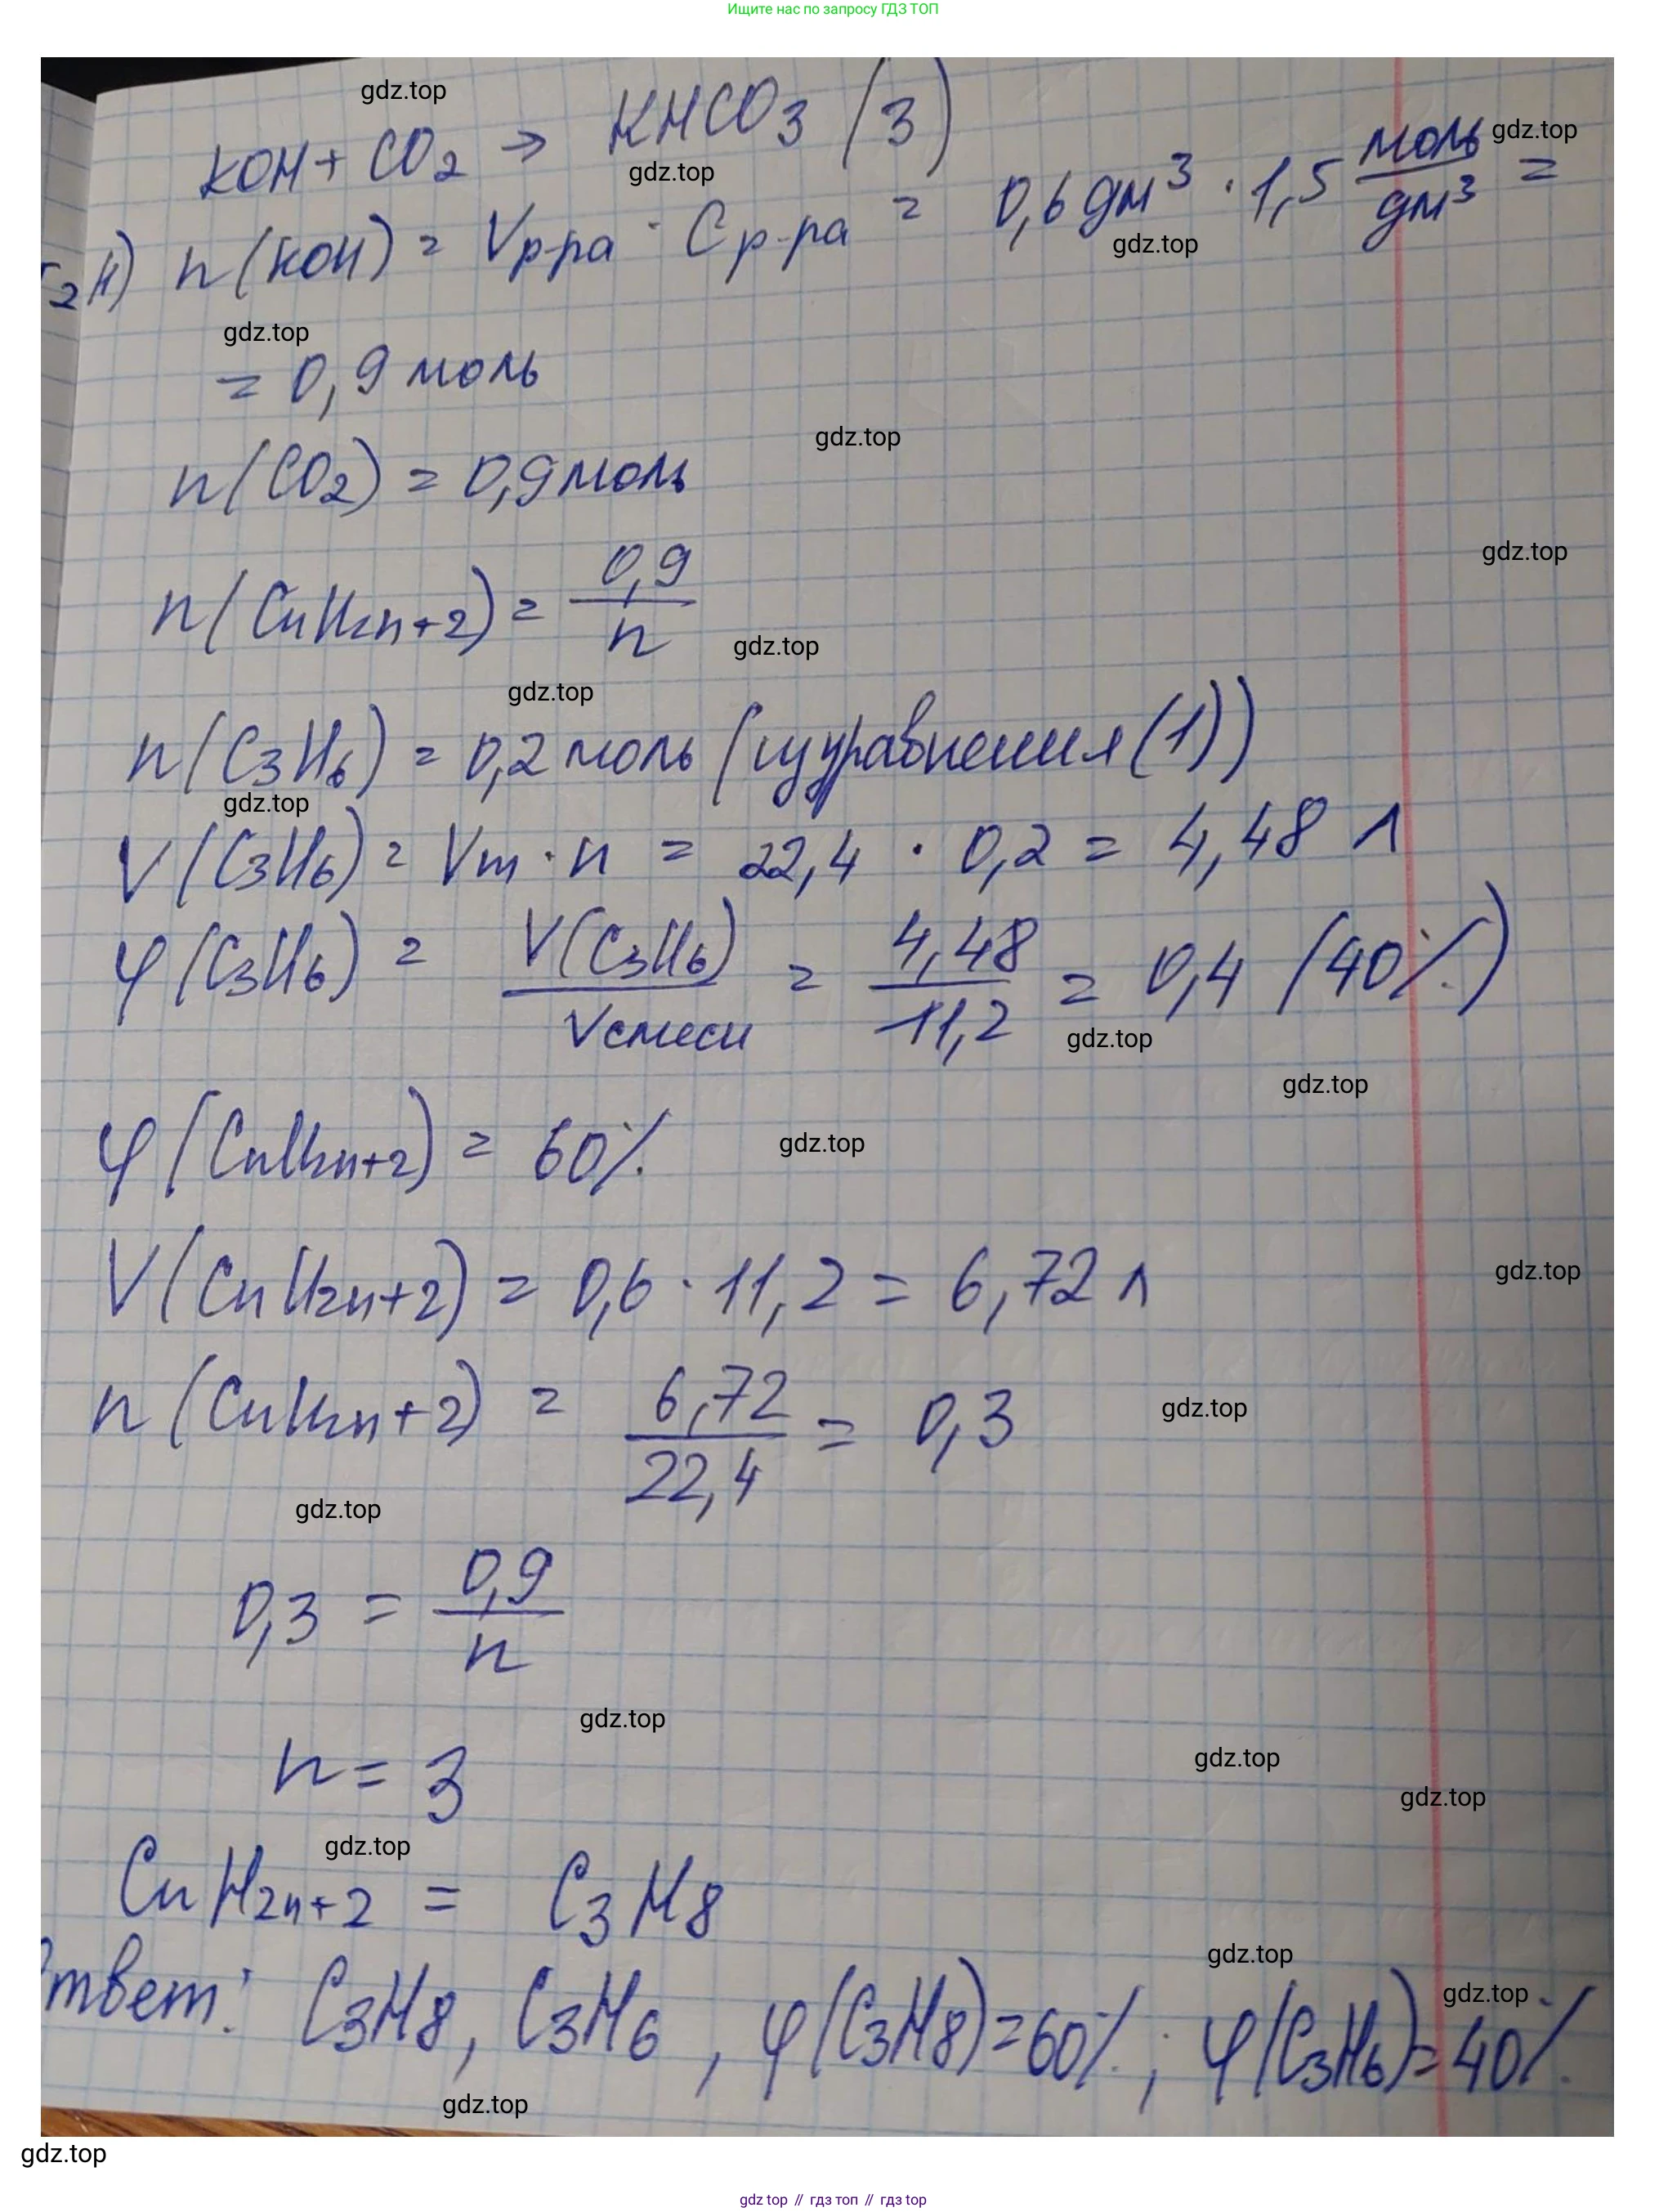 Ищите нас по запросу ГДЗ ТОП
gdz.top
KOH + CO2 → KHCO3 (3)
gdz.top
gdz.top
n(KOH) = Vр-ра · Cр-ра = 0,6 дм³ · 1,5 моль/дм³ =
gdz.top
gdz.top
= 0,9 моль
gdz.top
n(CO2) = 0,9 моль
gdz.top
n(CnH2n+2) = 0,9/n
gdz.top
gdz.top
n(C3H6) = 0,2 моль (из уравнения (1))
gdz.top
V(C3H6) = Vm · n = 22,4 · 0,2 = 4,48 л
φ(C3H6) = V(C3H6)/Vсмеси = 4,48/11,2 = 0,4 (40%)
gdz.top
gdz.top
φ(CnH2n+2) = 60%
gdz.top
V(CnH2n+2) = 0,6 · 11,2 = 6,72 л
gdz.top
n(CnH2n+2) = 6,72/22,4 = 0,3
gdz.top
gdz.top
0,3 = 0,9/n
gdz.top
n = 3
gdz.top
gdz.top
gdz.top
CnH2n+2 = C3H8
gdz.top
gdz.top
Ответ: C3H8, C3H6, φ(C3H8)=60%; φ(C3H6)=40%
gdz.top
gdz.top
gdz.top // гдз топ // гдз top